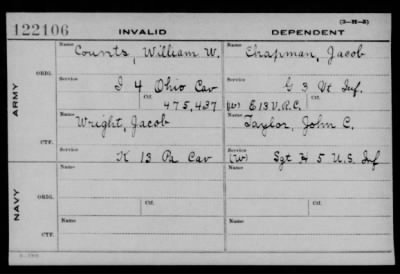 (3-H-3)
122106 INVALID DEPENDENT
ARMY
ORIG.
Name Counts, William W.
Name Chapman, Jacob
Service I 4 Ohio Cav
Service G 3 Vt Inf.
Ctf. 475,437
Ctf. E 13 V.R.C.
CTF.
Name Wright, Jacob
Name Taylor, John C.
Service K 13 Pa Cav
Service (W) Sgt H 5 U.S. Inf
NAVY
ORIG.
Name
Name
Service
Service
Ctf.
Ctf.
CTF.
Name
Name